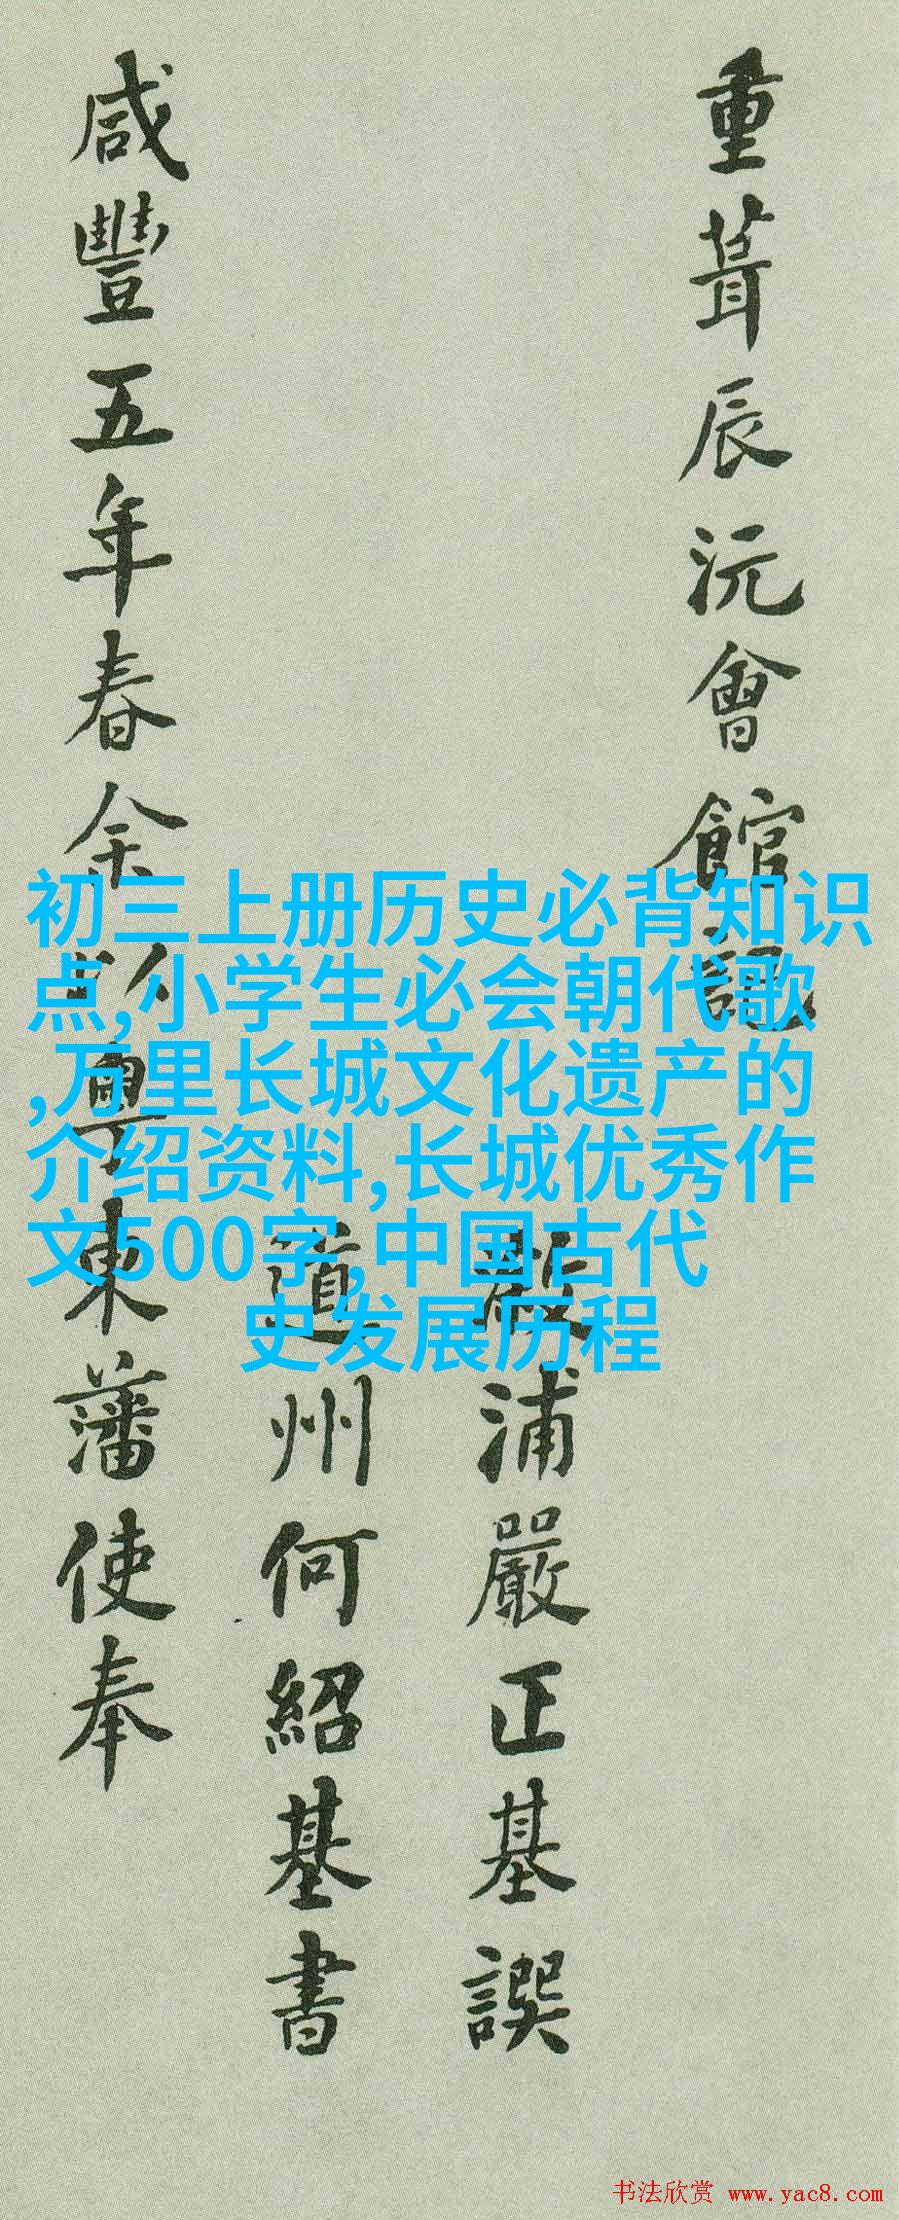 重葺辰沅會館記
溆浦嚴正基譔
道州何紹基書
咸豐五年春余以粤東藩使奉
初三上册历史必背知识
点,小学生必会朝代歌
,万里长城文化遗产的
介绍资料,长城优秀作
文500字,中国古代
史发展历程
书法欣赏 www.yac8.com